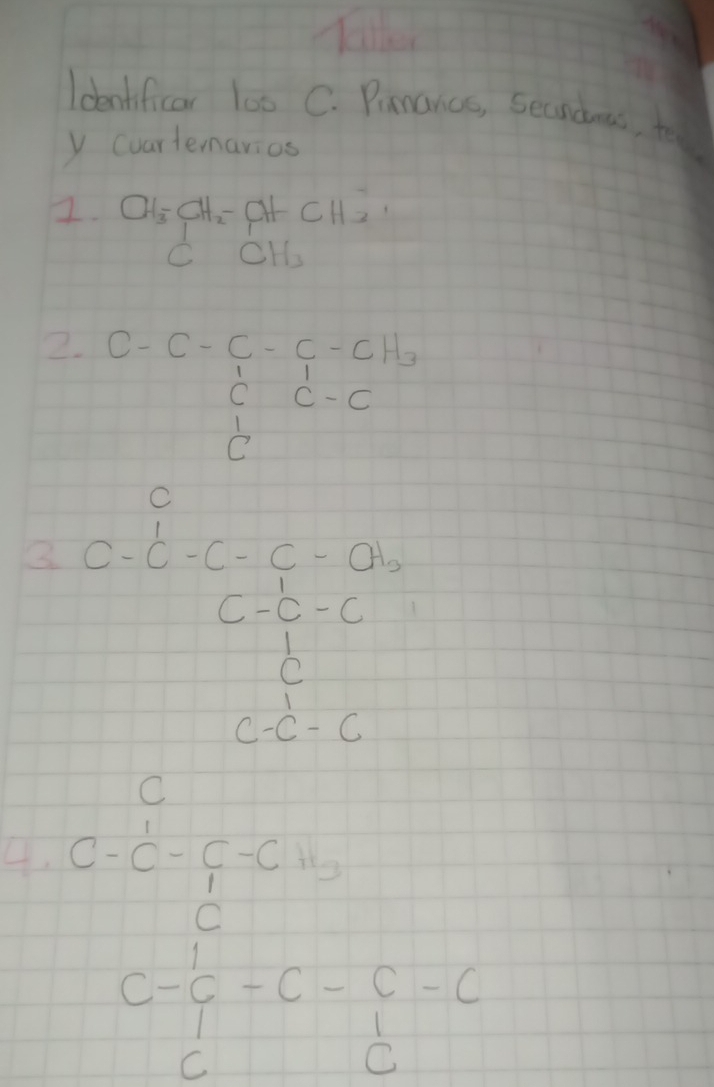 Taller
Identificar los C. Primarios, Secundarios,
y cuarternarios
1. CH3-CH2-CH-CH3
C CH3
2. C-C-C-C-CH3
C C-C
C
C
3. C-C-C-C-CH3
C-C-C
C
C-C-C
C
4. C-C-C-CH3
C
C-C-C-C-C
C C